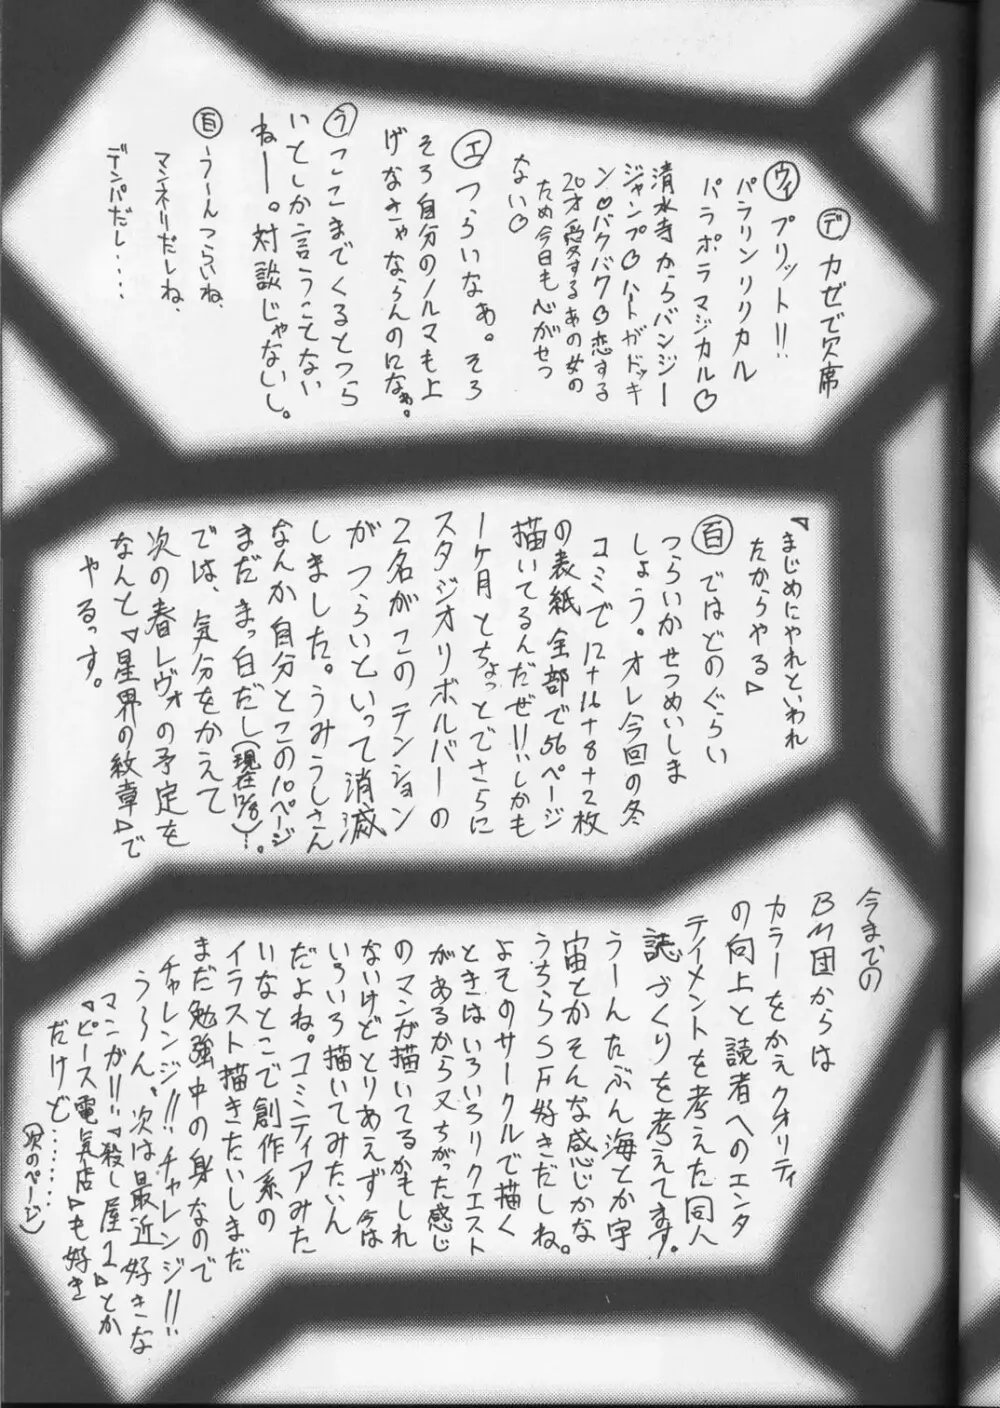 デ カゼで欠席
ウィ プリットリ!!
パラリンリリカル
パラポラマジカル♡
清水寺からバンジー
ジャンプ♡ハートがドッキ
ン♡バクバク♡恋する
20才愛するあの女の
ため今日も心がせつ
ない♡
エ つらいなぁ。そろ
そろ自分のノルマも上
げなきゃならんのになぁ。
う ここまでくるとつら
いとしか言うことない
ねー。対談じゃないし。
百 う〜んつらいね、
マンネリだしね、
デンパだし....
◁まじめにやれといわれ
たからやる▷
百 ではどのぐらい
つらいかせつめいしま
しょう。オレ今回の冬
コミで12+16+8+2枚
の表紙全部で56ページ
描いてるんだぜ!!しかも
1ヶ月とちょっとでさらに
スタジオリボルバーの
2名がこのテンション
がつらいといって消滅
しました。うみうしさん
なんか自分とこの10ページ
まだまっ白だし(現在12/8)...。
では、気分をかえて
次の春レヴォの予定を
なんと◁星界の紋章▷で
やるっす。
今までの
BM団からは
カラーをかえクオリティ
の向上と読者へのエンタ
ティメントを考えた同人
誌づくりを考えてます。
うーんたぶん海とか宇
宙とかそんな感じかな
うちらSF好きだしね。
よそのサークルで描く
ときはいろいろリクエスト
があるから又ちがった感じ
のマンガ描いてるかもしれ
ないけどとりあえず今は
いろいろ描いてみたいん
だよね。コミティアみた
いなとこで創作系の
イラスト描きたいしまだ
まだ勉強中の身なので
チャレンジ!!チャレンジ!!
う〜ん、次は最近好きな
マンガ!!◁殺し屋1▷とか
◁ピース電気店▷も好き
だけど........
(次のページ)